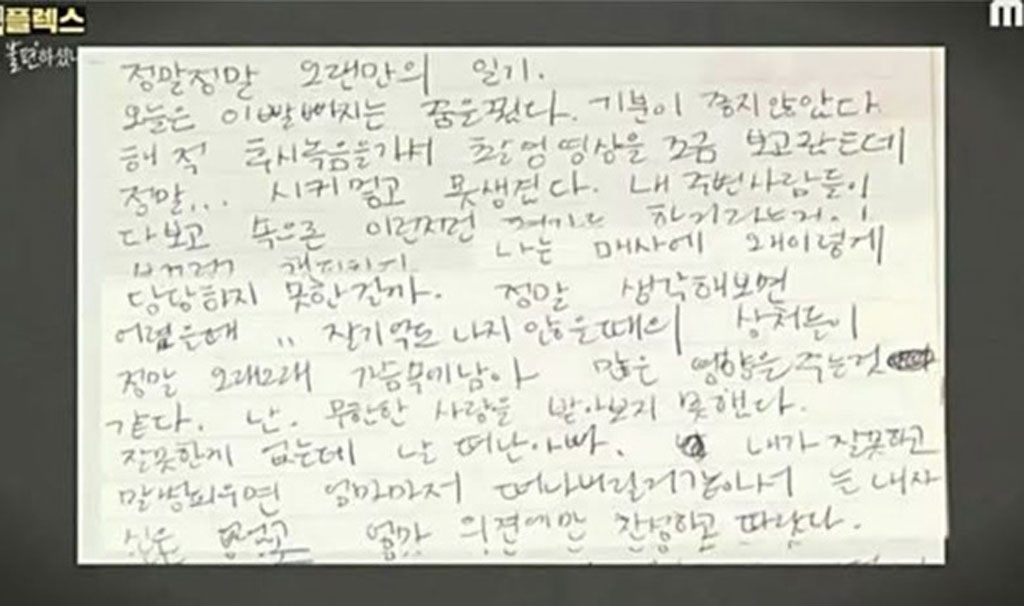 플렉스
M
불편하셨나
정말정말 오랜만의 일기.
오늘은 이빨빠지는 꿈을꿨다. 기분이 좋지않았다
해적 후시녹음들가서 촬영영상을 조금 보고왔는데
정말... 시커멓고 못생겼다. 내 주변사람들이
다보고 속으론 이런저런
나는 매사에 왜이렇게
당당하지 못한걸까. 정말 생각해보면
어렸을때 .. 잘기억도 나지 않을때의 상처들이
정말 오래오래 가슴속에남아 많은 영향을 주는것
같다. 난. 무한한 사랑을 받아보지 못했다.
잘못한게 없는데 날 떠난아빠. 내가 잘못하고
말썽피우면 엄마마저 떠나버릴거같아서 늘 내자
신은 없었고 엄마 의견에만 찬성하고 따랐다.